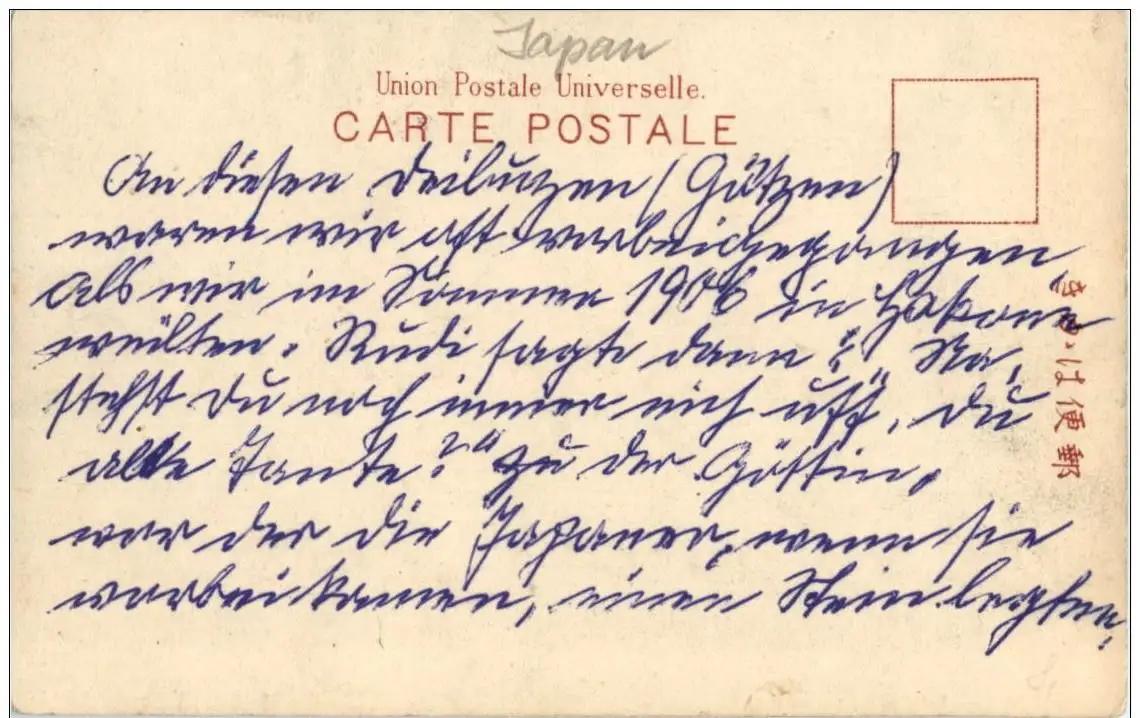 Japan
Union Postale Universelle.
CARTE POSTALE
An diesen Heiligen (Götzen)
waren wir oft vorbeigegangen,
als wir im Sommer 1906 in Hakone
weilten. Rudi sagte dann: "Na,
stehst Du noch immer nich uff, Du
alte Tante?" zu der Göttin,
vor der die Japaner, wenn sie
vorbeikamen, einen Stein legten.
郵便はかき